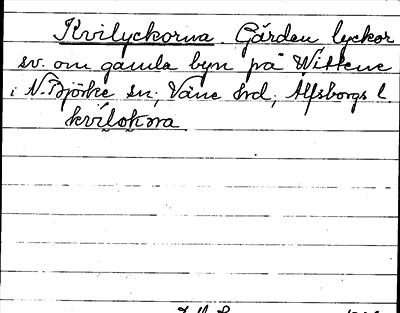 Kvilyckorna. Gärden lyckor
sv. om gamla byn på Wittene
i N. Björke sn; Väne hrd, Älfsborgs l.
kvílokơra